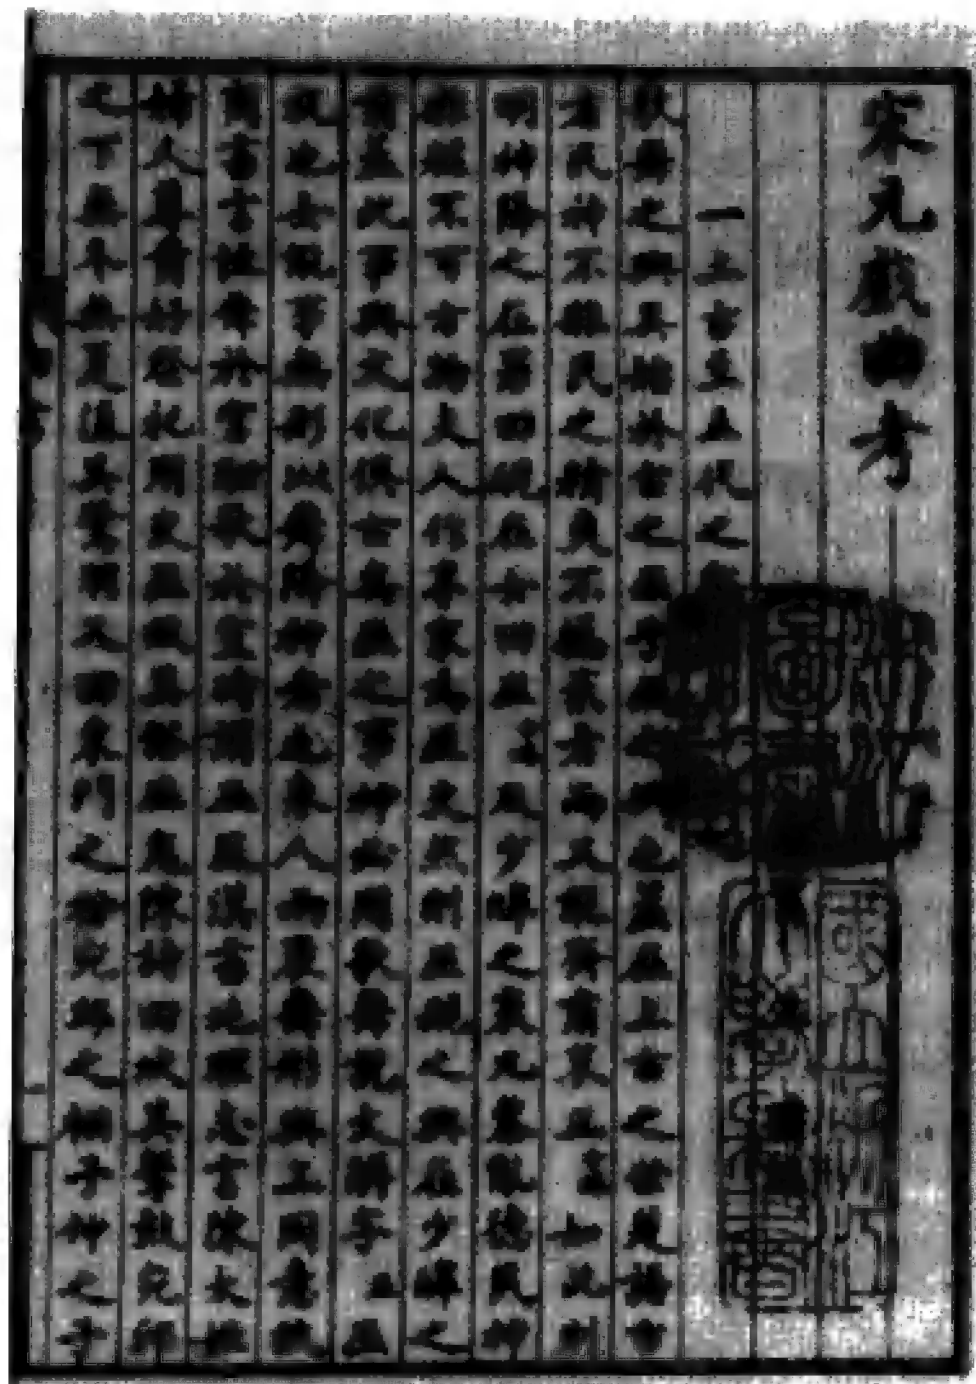 宋元戲曲考
一上古至五代之
歌舞之興其始於古之巫乎巫之興也蓋在上古之世楚語古
者民神不雜民之精爽不攜貳者而又能齊肅衷正中略如此則
明神降之在男曰覡在女曰巫中略及少皞之衰九黎亂德民神
雜糅不可方物夫人作享家為巫史然則巫覡之興在少皞之
前蓋此事與文化俱古矣巫之事神必用歌舞說文解字五巫
祝也女能事無形以舞降神者也象人兩褎舞形與工同意故
商書言恆舞於宮酣歌於室時謂巫風漢書地理志言陳太姬
婦人尊貴好祭祀用史巫故其俗巫鬼陳詩曰坎其擊鼓宛邱
之下無冬無夏值其鷺羽又曰東門之枌宛邱之栩子仲之子